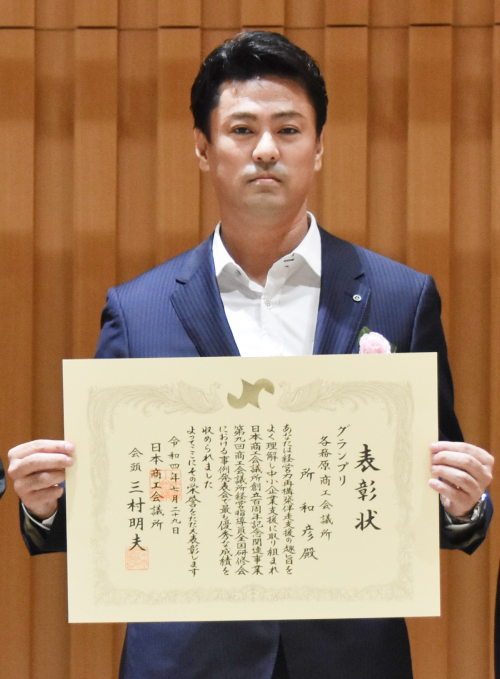 表彰状
グランプリ
各務原商工会議所
所和彦殿
あなたは経営力再構築伴走支援の趣旨を
よく理解し中小企業支援に取り組まれ
日本商工会議所創立百周年記念関連事業
第九回商工会議所経営指導員全国研修会
における事例発表会で最も優秀な成績を
収められました
よってここにその栄誉をたたえ表彰します
令和四年七月二十九日
日本商工会議所
会頭三村明夫